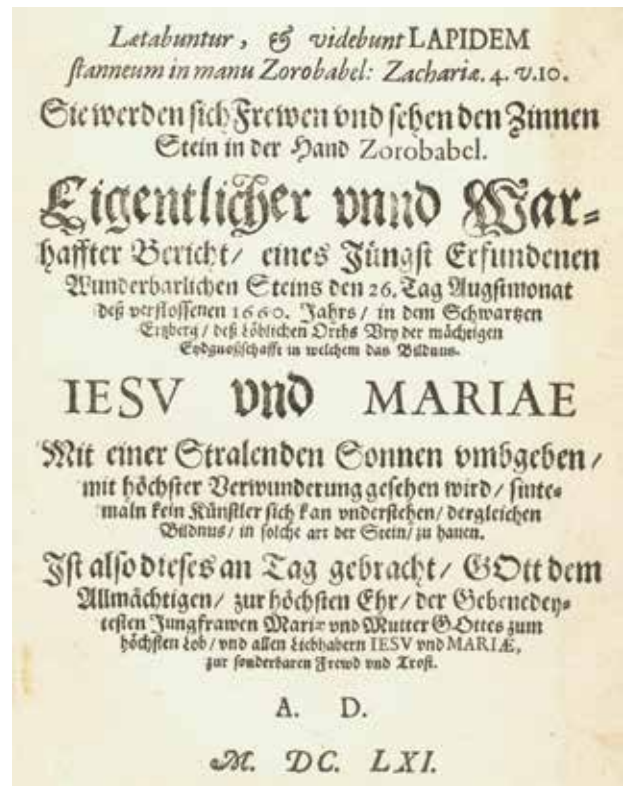 Lætabuntur, & videbunt LAPIDEM
ſtanneum in manu Zorobabel: Zachariæ. 4. v.10.
Sie werden ſich Frewen vnd ſehen den Zinnen
Stein in der Hand Zorobabel.
Eigentlicher vnnd War-
haffter Bericht/ eines Jüngſt Erfundenen
Wunderbarlichen Steins den 26. Tag Augſtmonat
deß verfloſſenen 1660. Jahrs/ in dem Schwartzen
Ertzberg/ deß Löblichen Orths Vry der mächtigen
Eydgnoßſchafft in welchem das Bildnus.
IESV vnd MARIAE
Mit einer Stralenden Sonnen vmbgeben/
mit höchſter Verwunderung geſehen wird/ ſinte-
maln kein Künſtler ſich kan vnderſtehen/ dergleichen
Bildnus/ in ſolche art der Stein/ zu hauen.
Iſt alſo dieſes an Tag gebracht/ GOtt dem
Allmächtigen/ zur höchſten Ehr/ der Gebenedey-
teſten Jungfrawen Mariæ vnd Mutter GOttes zum
höchſten Lob/ vnd allen Liebhabern IESV vnd MARIÆ,
zur ſonderbaren Frewd vnd Troſt.
A. D.
M. DC. LXI.